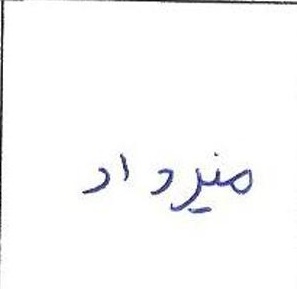 منیرداد